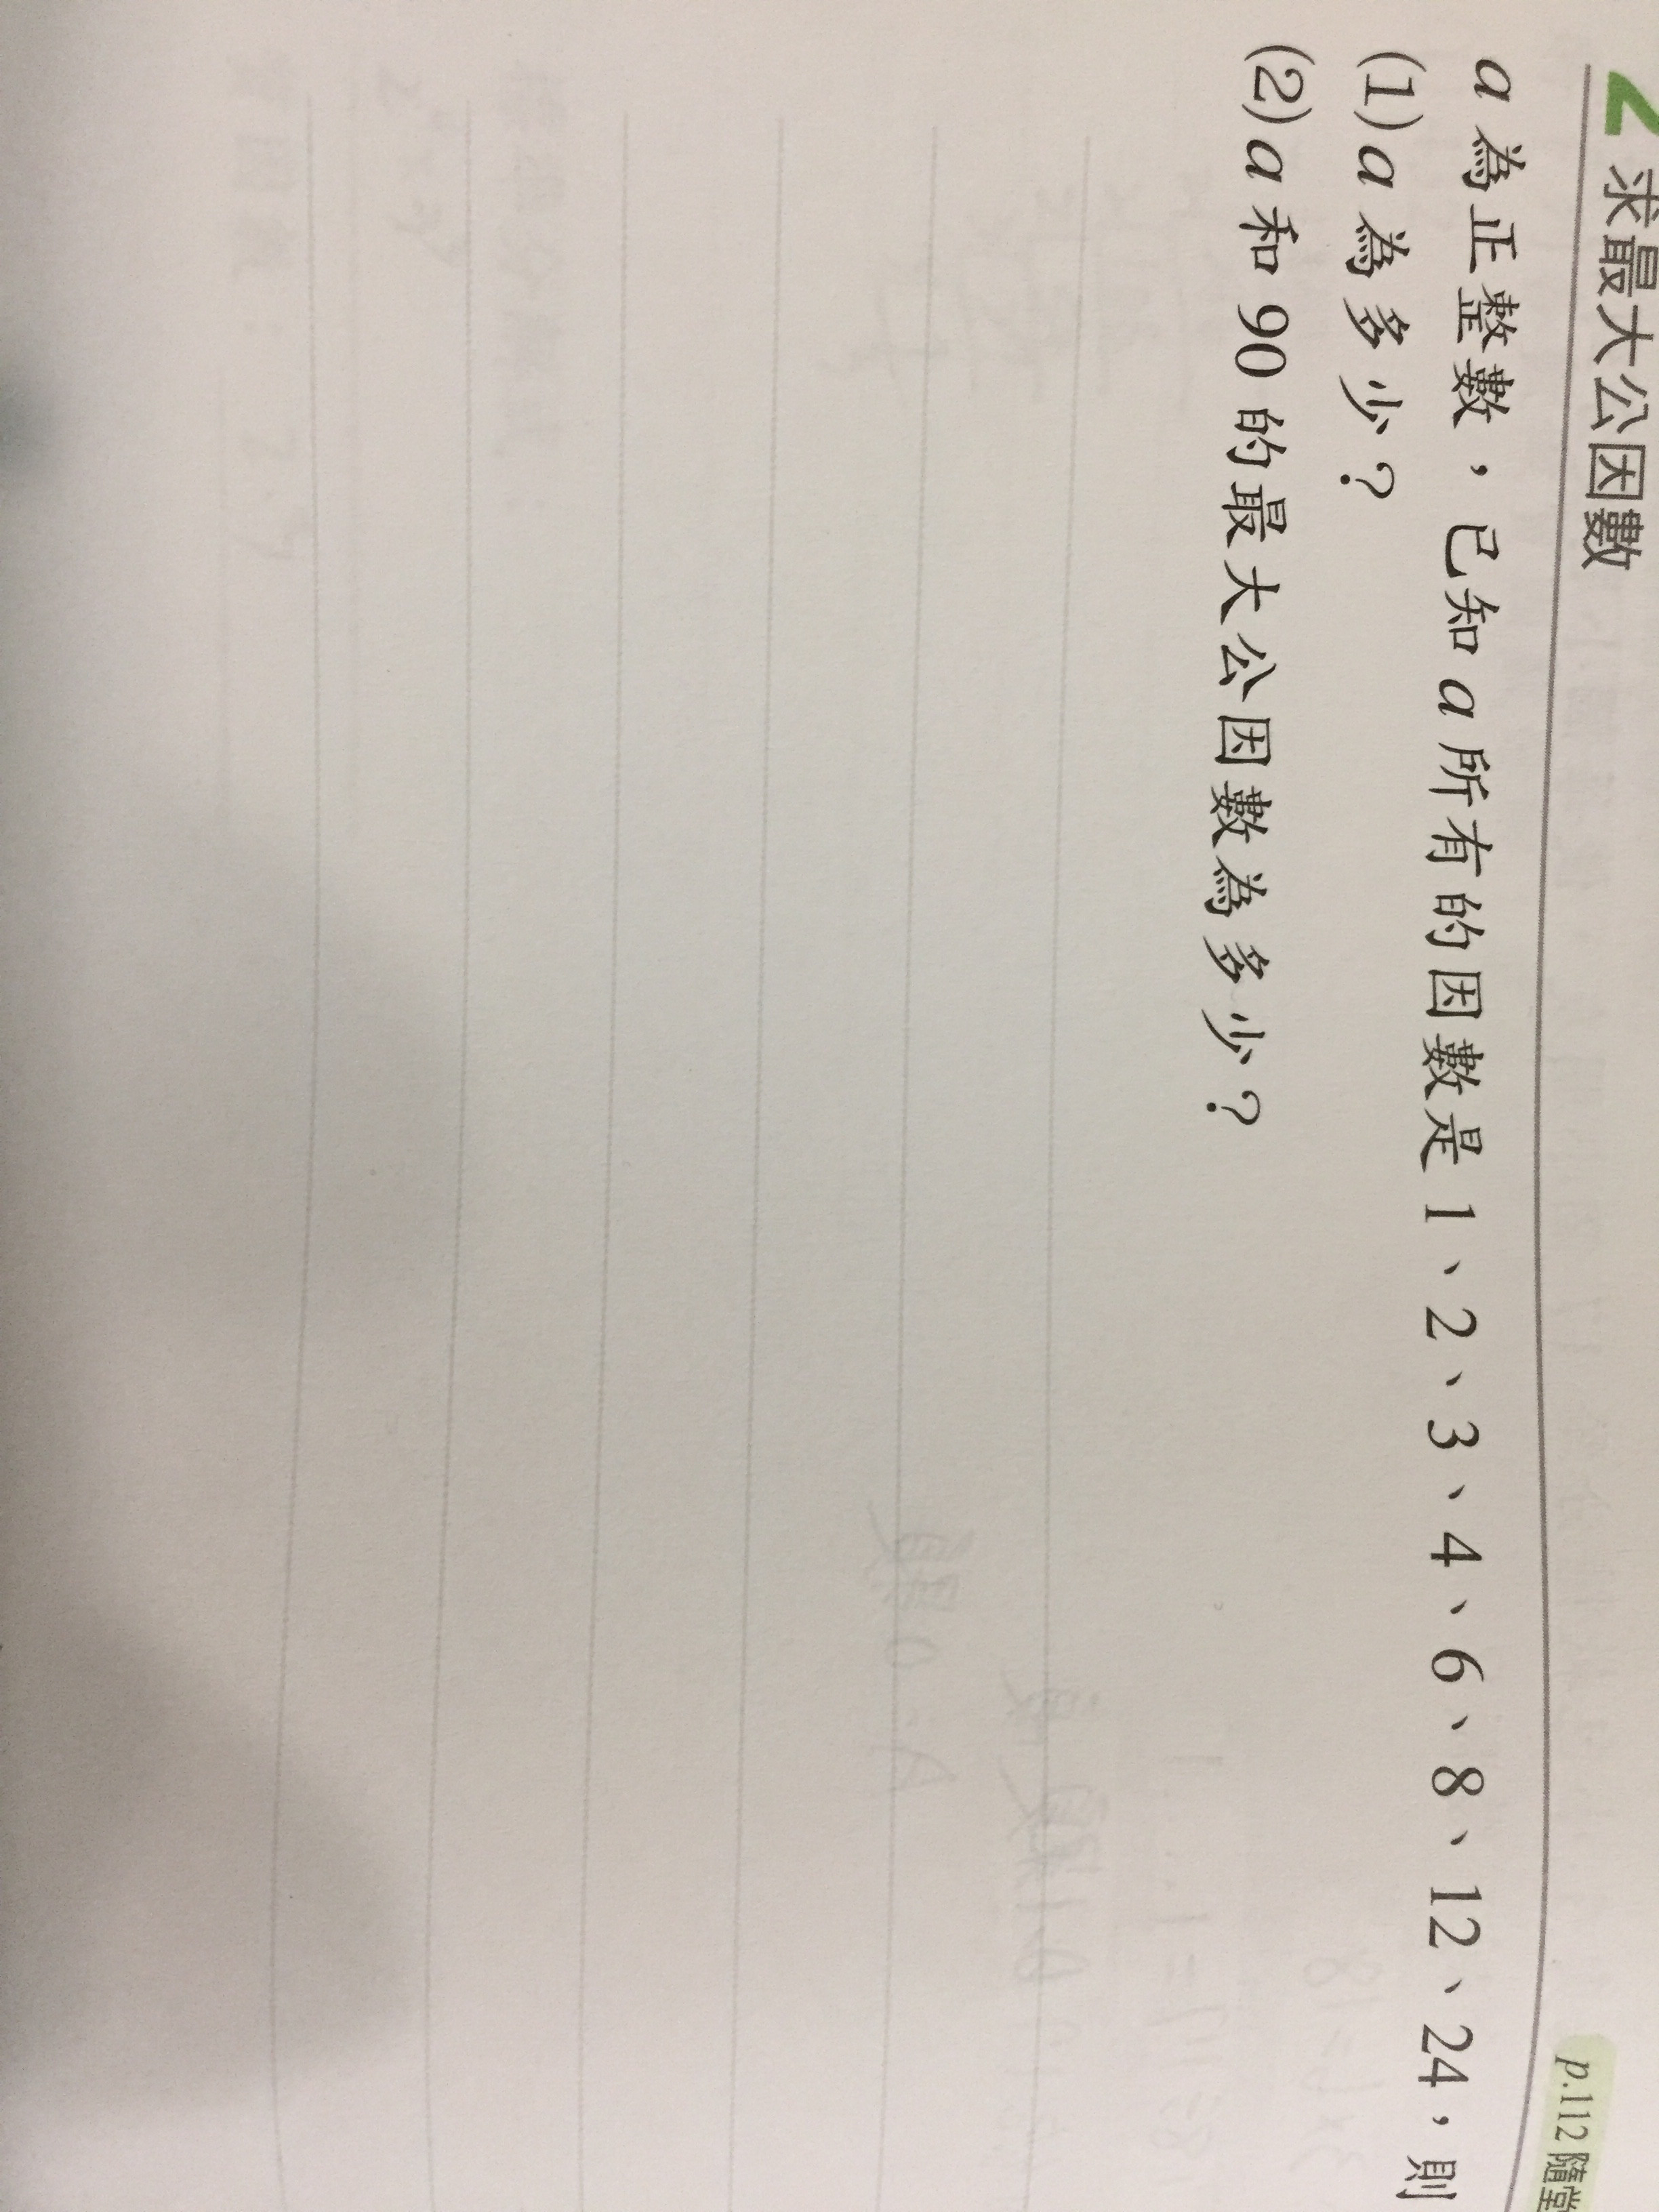 2 求最大公因數
p.112 隨堂
a 為正整數，已知 a 所有的因數是 1、2、3、4、6、8、12、24，則
(1) a 為多少？
(2) a 和 90 的最大公因數為多少？